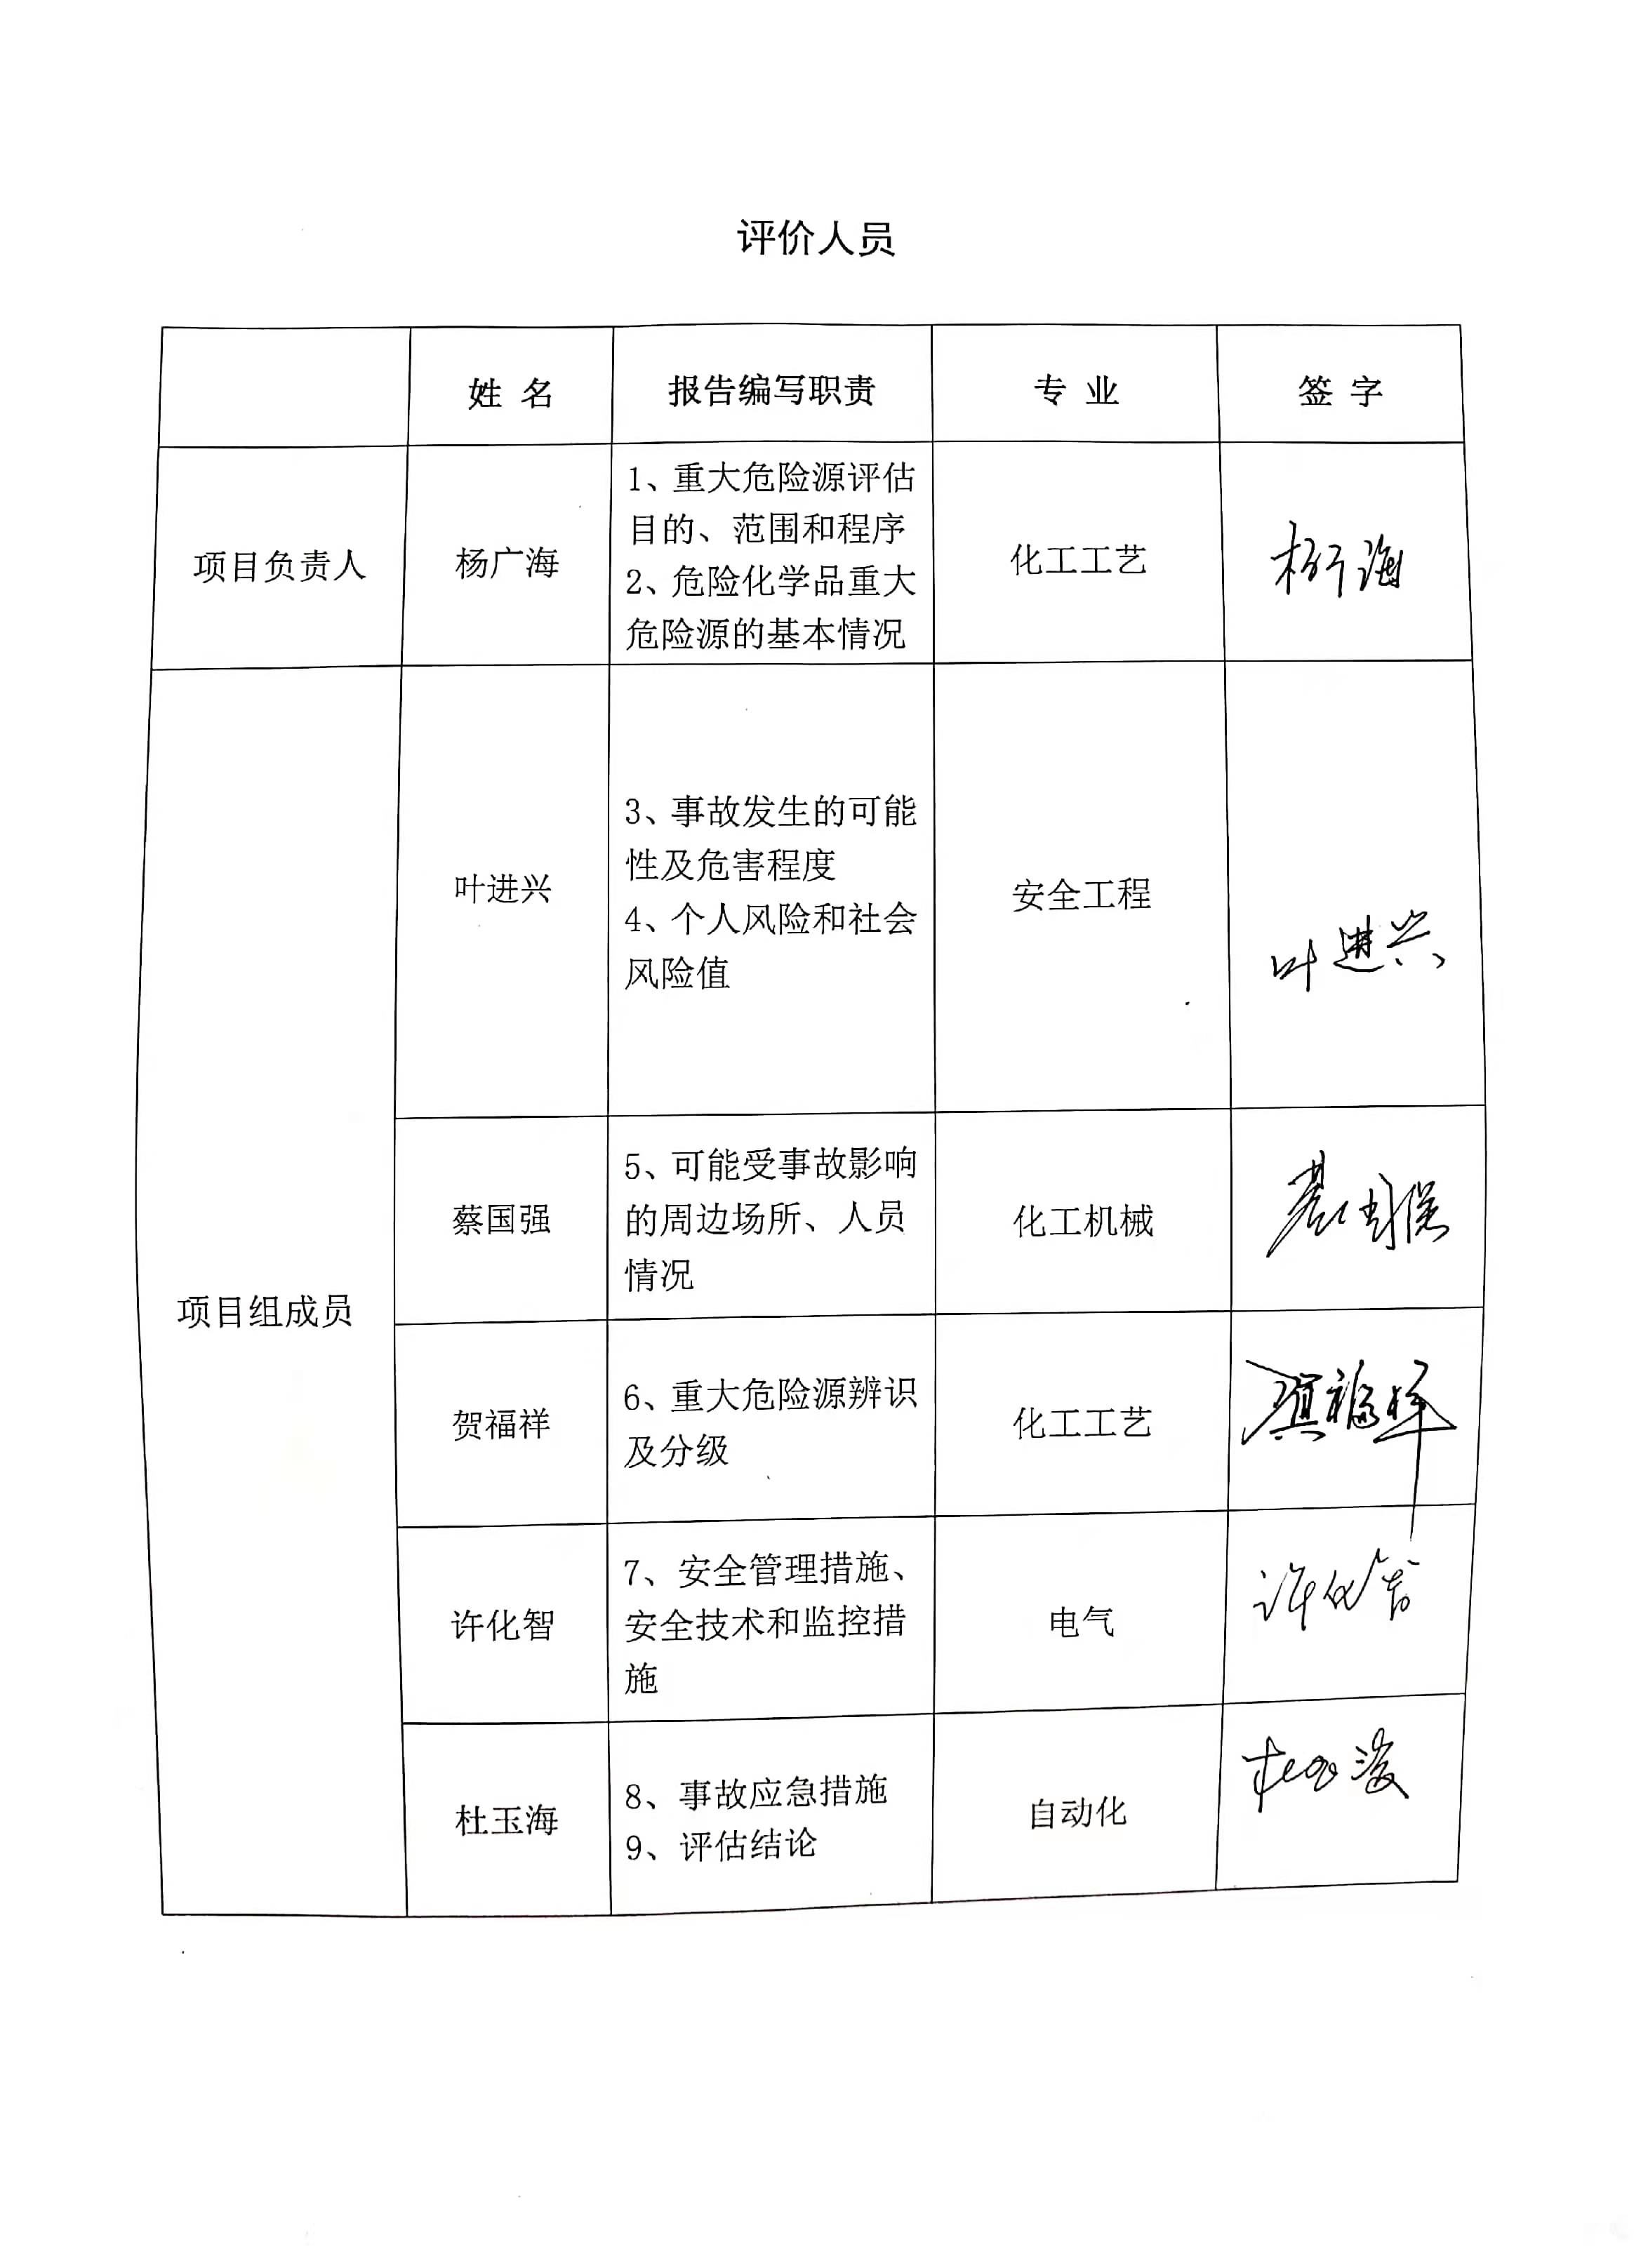 评价人员
姓 名
报告编写职责
专 业
签 字
项目负责人
杨广海
1、重大危险源评估
目的、范围和程序
2、危险化学品重大
危险源的基本情况
化工工艺
杨广海
项目组成员
叶进兴
3、事故发生的可能
性及危害程度
4、个人风险和社会
风险值
安全工程
叶进兴
蔡国强
5、可能受事故影响
的周边场所、人员
情况
化工机械
蔡国强
贺福祥
6、重大危险源辨识
及分级
化工工艺
贺福祥
许化智
7、安全管理措施、
安全技术和监控措
施
电气
许化智
杜玉海
8、事故应急措施
9、评估结论
自动化
杜玉海